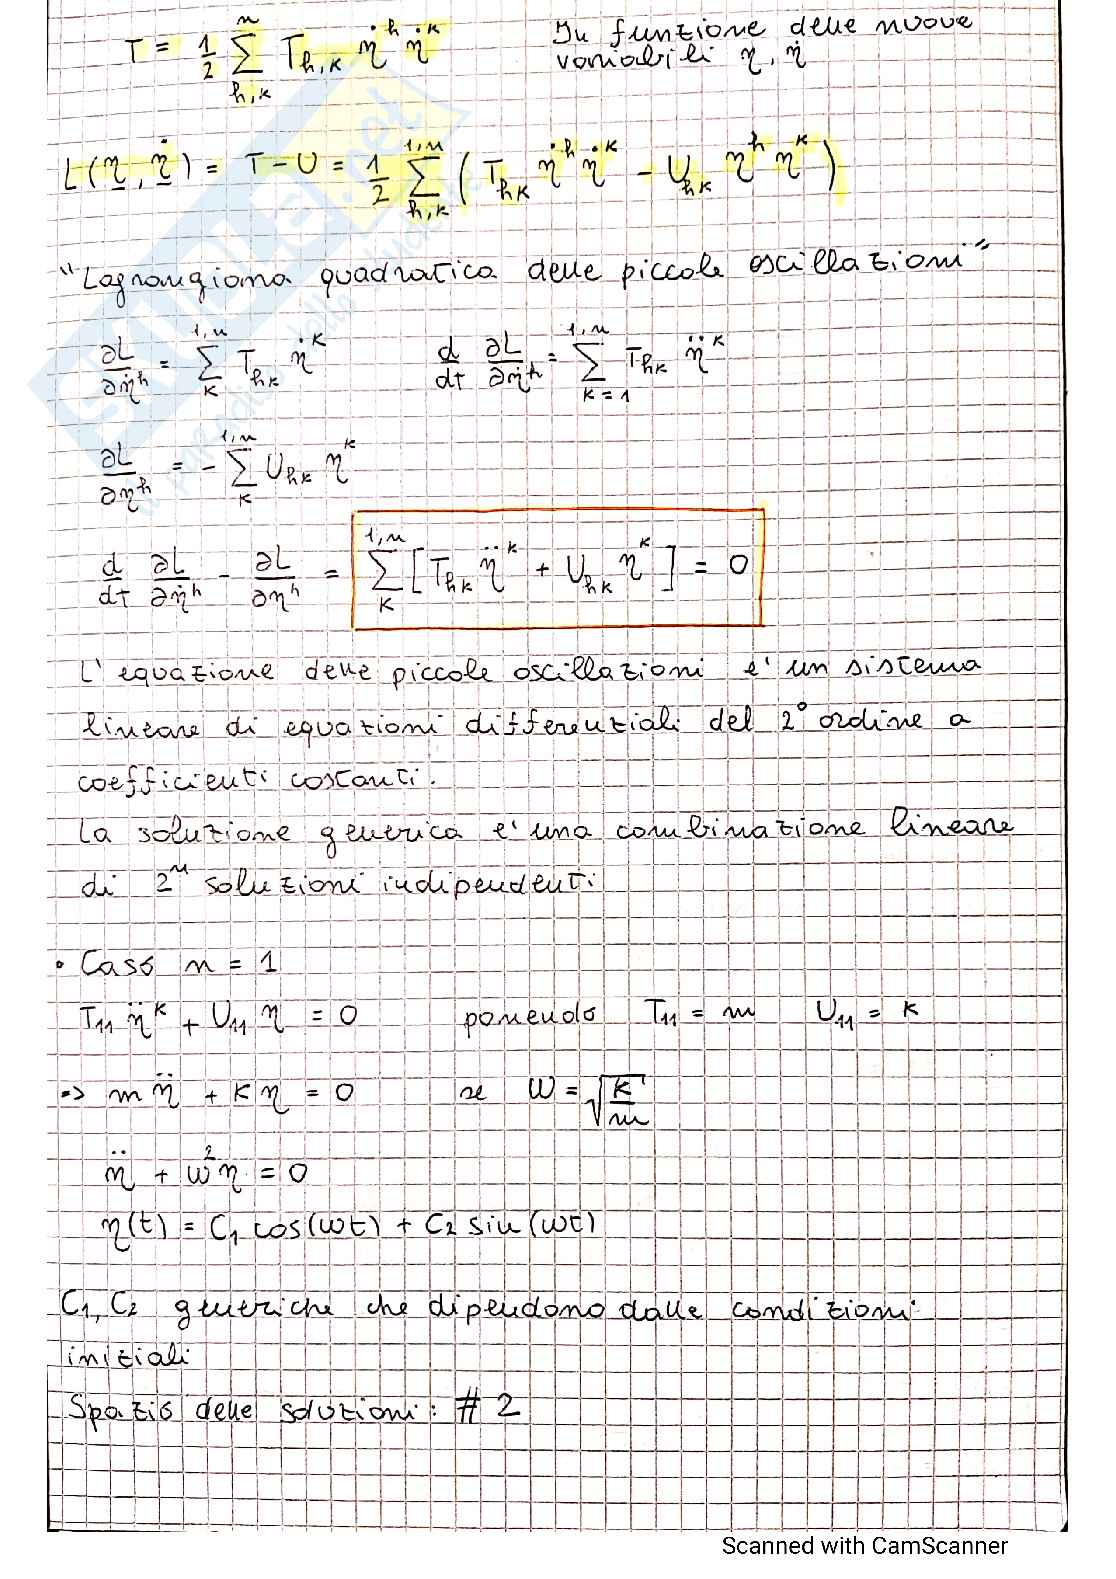 T = 1/2 Σ_{h,k}^{n} T_{h,k} η̇^h η̇^k    In funzione delle nuove
variabili η, η̇
L(η, η̇) = T - U = 1/2 Σ_{h,k}^{1,n} ( T_{hk} η̇^h η̇^k - U_{hk} η^h η^k )
"Lagrangiana quadratica delle piccole oscillazioni"
∂L/∂η̇^h = Σ_{k}^{1,n} T_{hk} η̇^k    d/dt ∂L/∂η̇^h = Σ_{k=1}^{1,n} T_{hk} η̈^k
∂L/∂η^h = - Σ_{k}^{1,n} U_{hk} η^k
d/dt ∂L/∂η̇^h - ∂L/∂η^h = Σ_{k}^{1,n} [ T_{hk} η̈^k + U_{hk} η^k ] = 0
L'equazione delle piccole oscillazioni e' un sistema
lineare di equazioni differenziali del 2° ordine a
coefficienti costanti.
La soluzione generica e' una combinazione lineare
di 2^n soluzioni indipendenti
• Caso n = 1
T_{11} η̈^k + U_{11} η = 0    ponendo    T_{11} = m    U_{11} = k
=> m η̈ + k η = 0    se    ω = √(k/m)
η̈ + ω² η = 0
η(t) = C_1 cos(ωt) + C_2 sin(ωt)
C_1, C_2 generiche che dipendono dalle condizioni
iniziali
Spazio delle soluzioni: # 2
Scanned with CamScanner